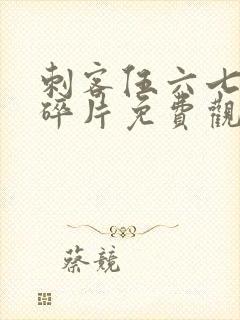 刺客伍六七
碎片免費觀
蔡競